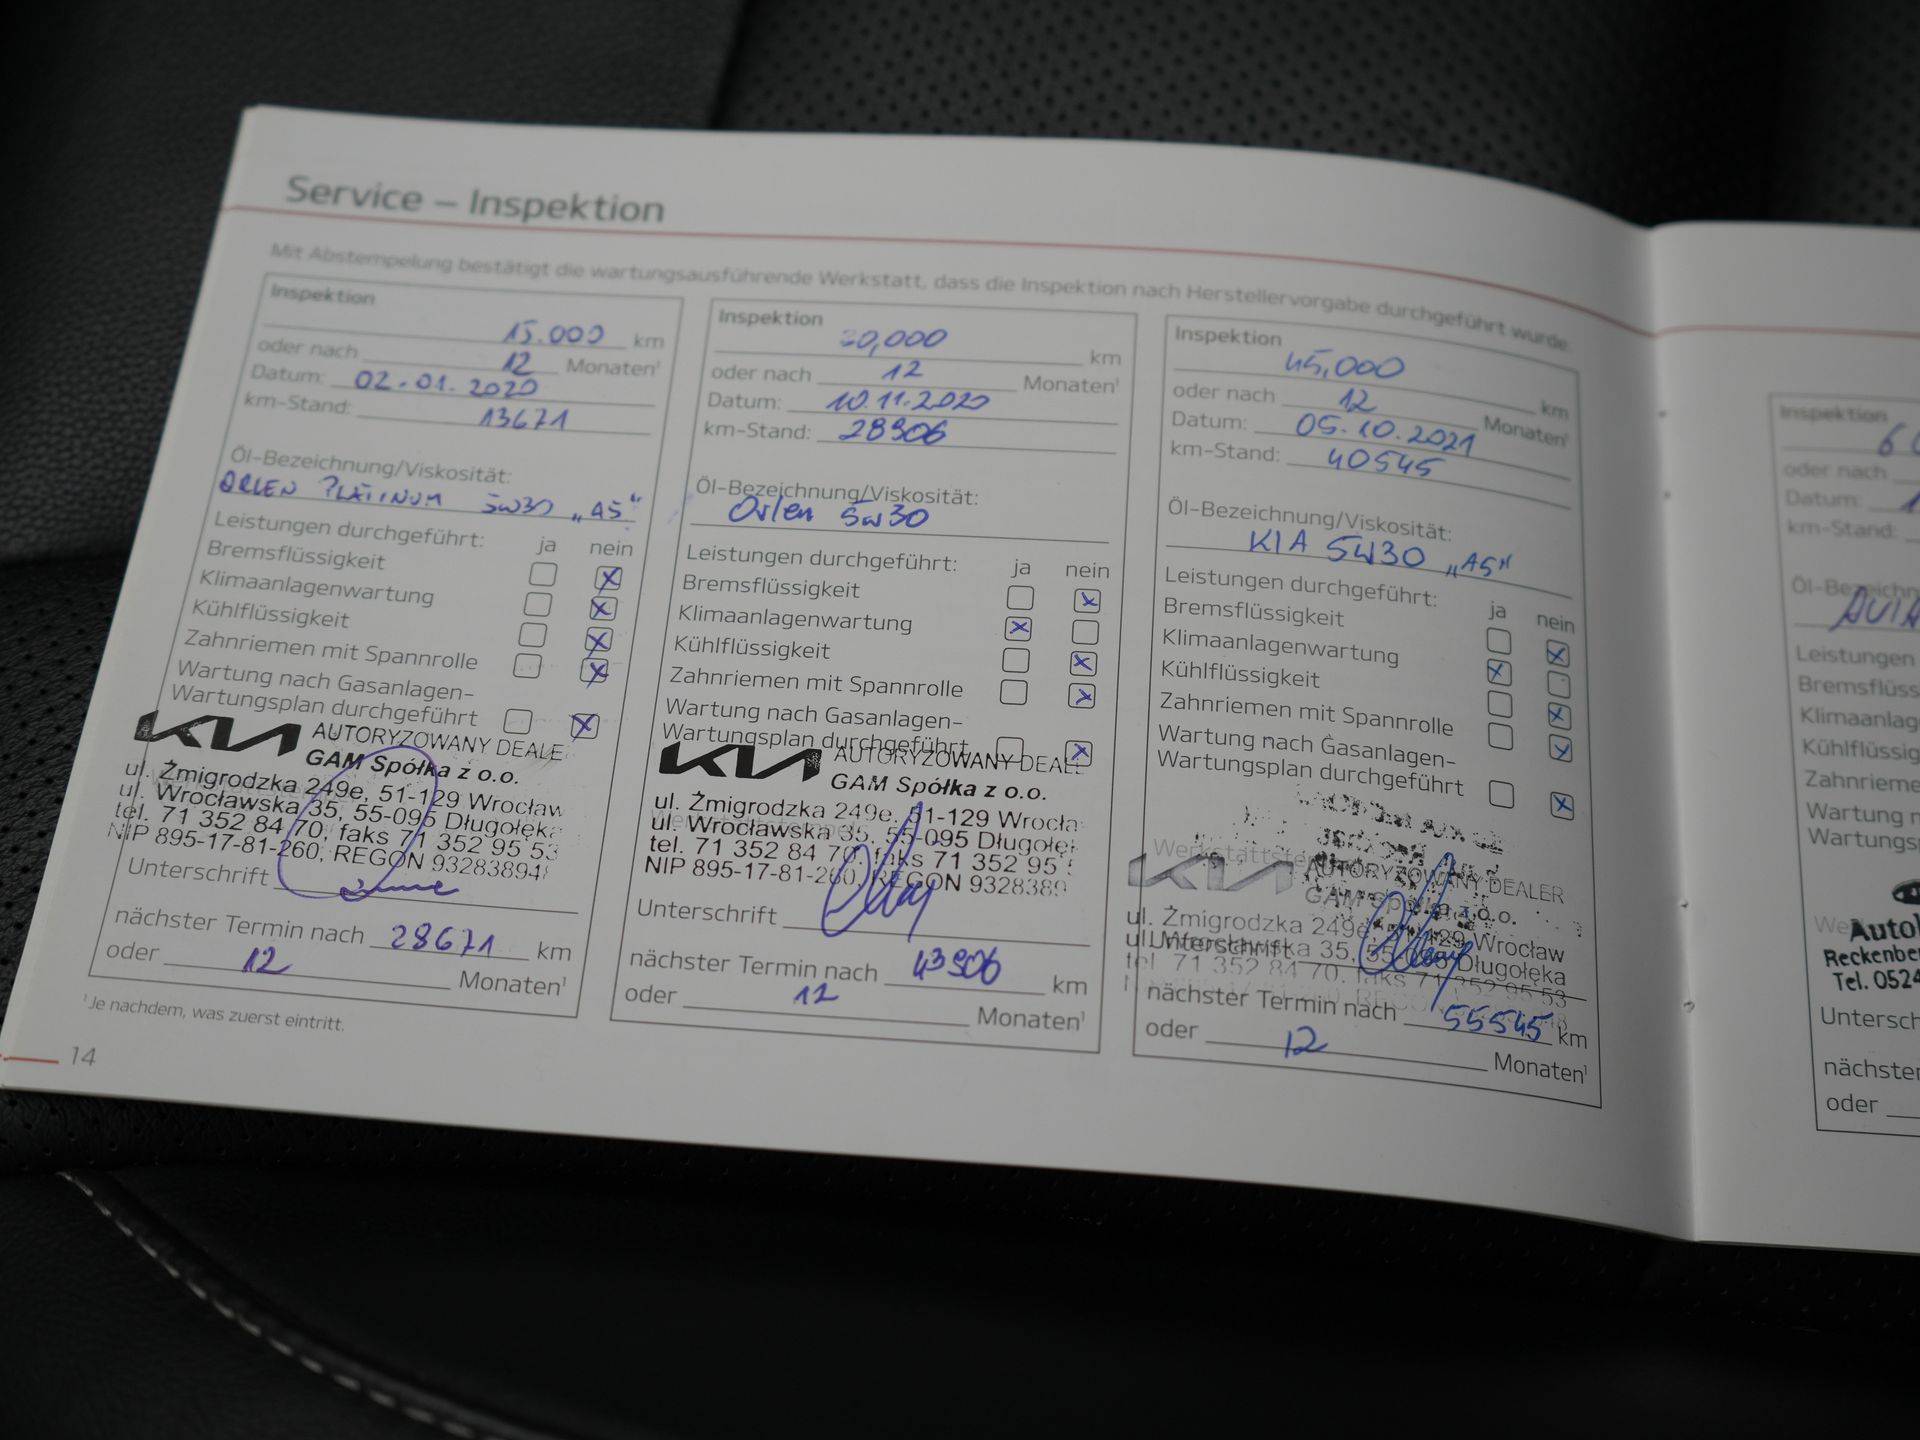 Service – Inspektion
Mit Abstempelung bestätigt die wartungsausführende Werkstatt, dass die Inspektion nach Herstellervorgabe durchgeführt wurde.
Inspektion
15.000 km
oder nach 12 Monaten¹
Datum: 02.01.2020
km-Stand: 13671
Öl-Bezeichnung/Viskosität:
ORLEN PLATINUM 5W30 „A5"
Leistungen durchgeführt: ja nein
Bremsflüssigkeit
Klimaanlagenwartung
Kühlflüssigkeit
Zahnriemen mit Spannrolle
Wartung nach Gasanlagen-
Wartungsplan durchgeführt
KIA AUTORYZOWANY DEALE
GAM Spółka z o.o.
ul. Żmigrodzka 249e, 51-129 Wrocław
ul. Wrocławska 35, 55-095 Długołęka
tel. 71 352 84 70, faks 71 352 95 53
NIP 895-17-81-260, REGON 932838948
Unterschrift
nächster Termin nach 28671 km
oder 12 Monaten¹
¹ Je nachdem, was zuerst eintritt.
14
Inspektion
30,000 km
oder nach 12 Monaten¹
Datum: 10.11.2020
km-Stand: 28906
Öl-Bezeichnung/Viskosität:
Orlen 5w30
Leistungen durchgeführt: ja nein
Bremsflüssigkeit
Klimaanlagenwartung
Kühlflüssigkeit
Zahnriemen mit Spannrolle
Wartung nach Gasanlagen-
Wartungsplan durchgeführt
KIA AUTORYZOWANY DEALE
GAM Spółka z o.o.
ul. Żmigrodzka 249e, 51-129 Wrocła
ul. Wrocławska 35, 55-095 Długołęk
tel. 71 352 84 70, faks 71 352 95 5
NIP 895-17-81-260, REGON 9328389
Unterschrift
nächster Termin nach 43906 km
oder 12 Monaten¹
Inspektion
45,000 km
oder nach 12 Monaten¹
Datum: 05.10.2021
km-Stand: 40545
Öl-Bezeichnung/Viskosität:
KIA 5W30 „A5"
Leistungen durchgeführt: ja nein
Bremsflüssigkeit
Klimaanlagenwartung
Kühlflüssigkeit
Zahnriemen mit Spannrolle
Wartung nach Gasanlagen-
Wartungsplan durchgeführt
KIA AUTORYZOWANY DEALER
GAM Spółka z o.o.
ul. Żmigrodzka 249e, 51-129 Wrocław
ul. Wrocławska 35, 55-095 Długołęka
tel. 71 352 84 70, faks 71 352 95 53
Unterschrift
nächster Termin nach 55545 km
oder 12 Monaten¹
Inspektion
oder nach
Datum:
km-Stand:
Öl-Bezeichn
Leistungen
Bremsflüss
Klimaanlage
Kühlflüssig
Zahnriemen
Wartung n
Wartungs
Reckenbe
Tel. 0524
Untersch
nächster
oder